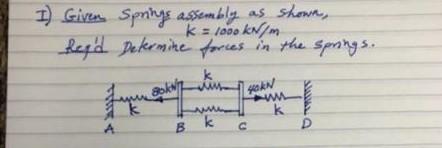 I) Given Springs assembly as shown,
k = 1000 kN/m
Req'd Determine forces in the springs.
k
80kN 40kN
k k
A B k C D